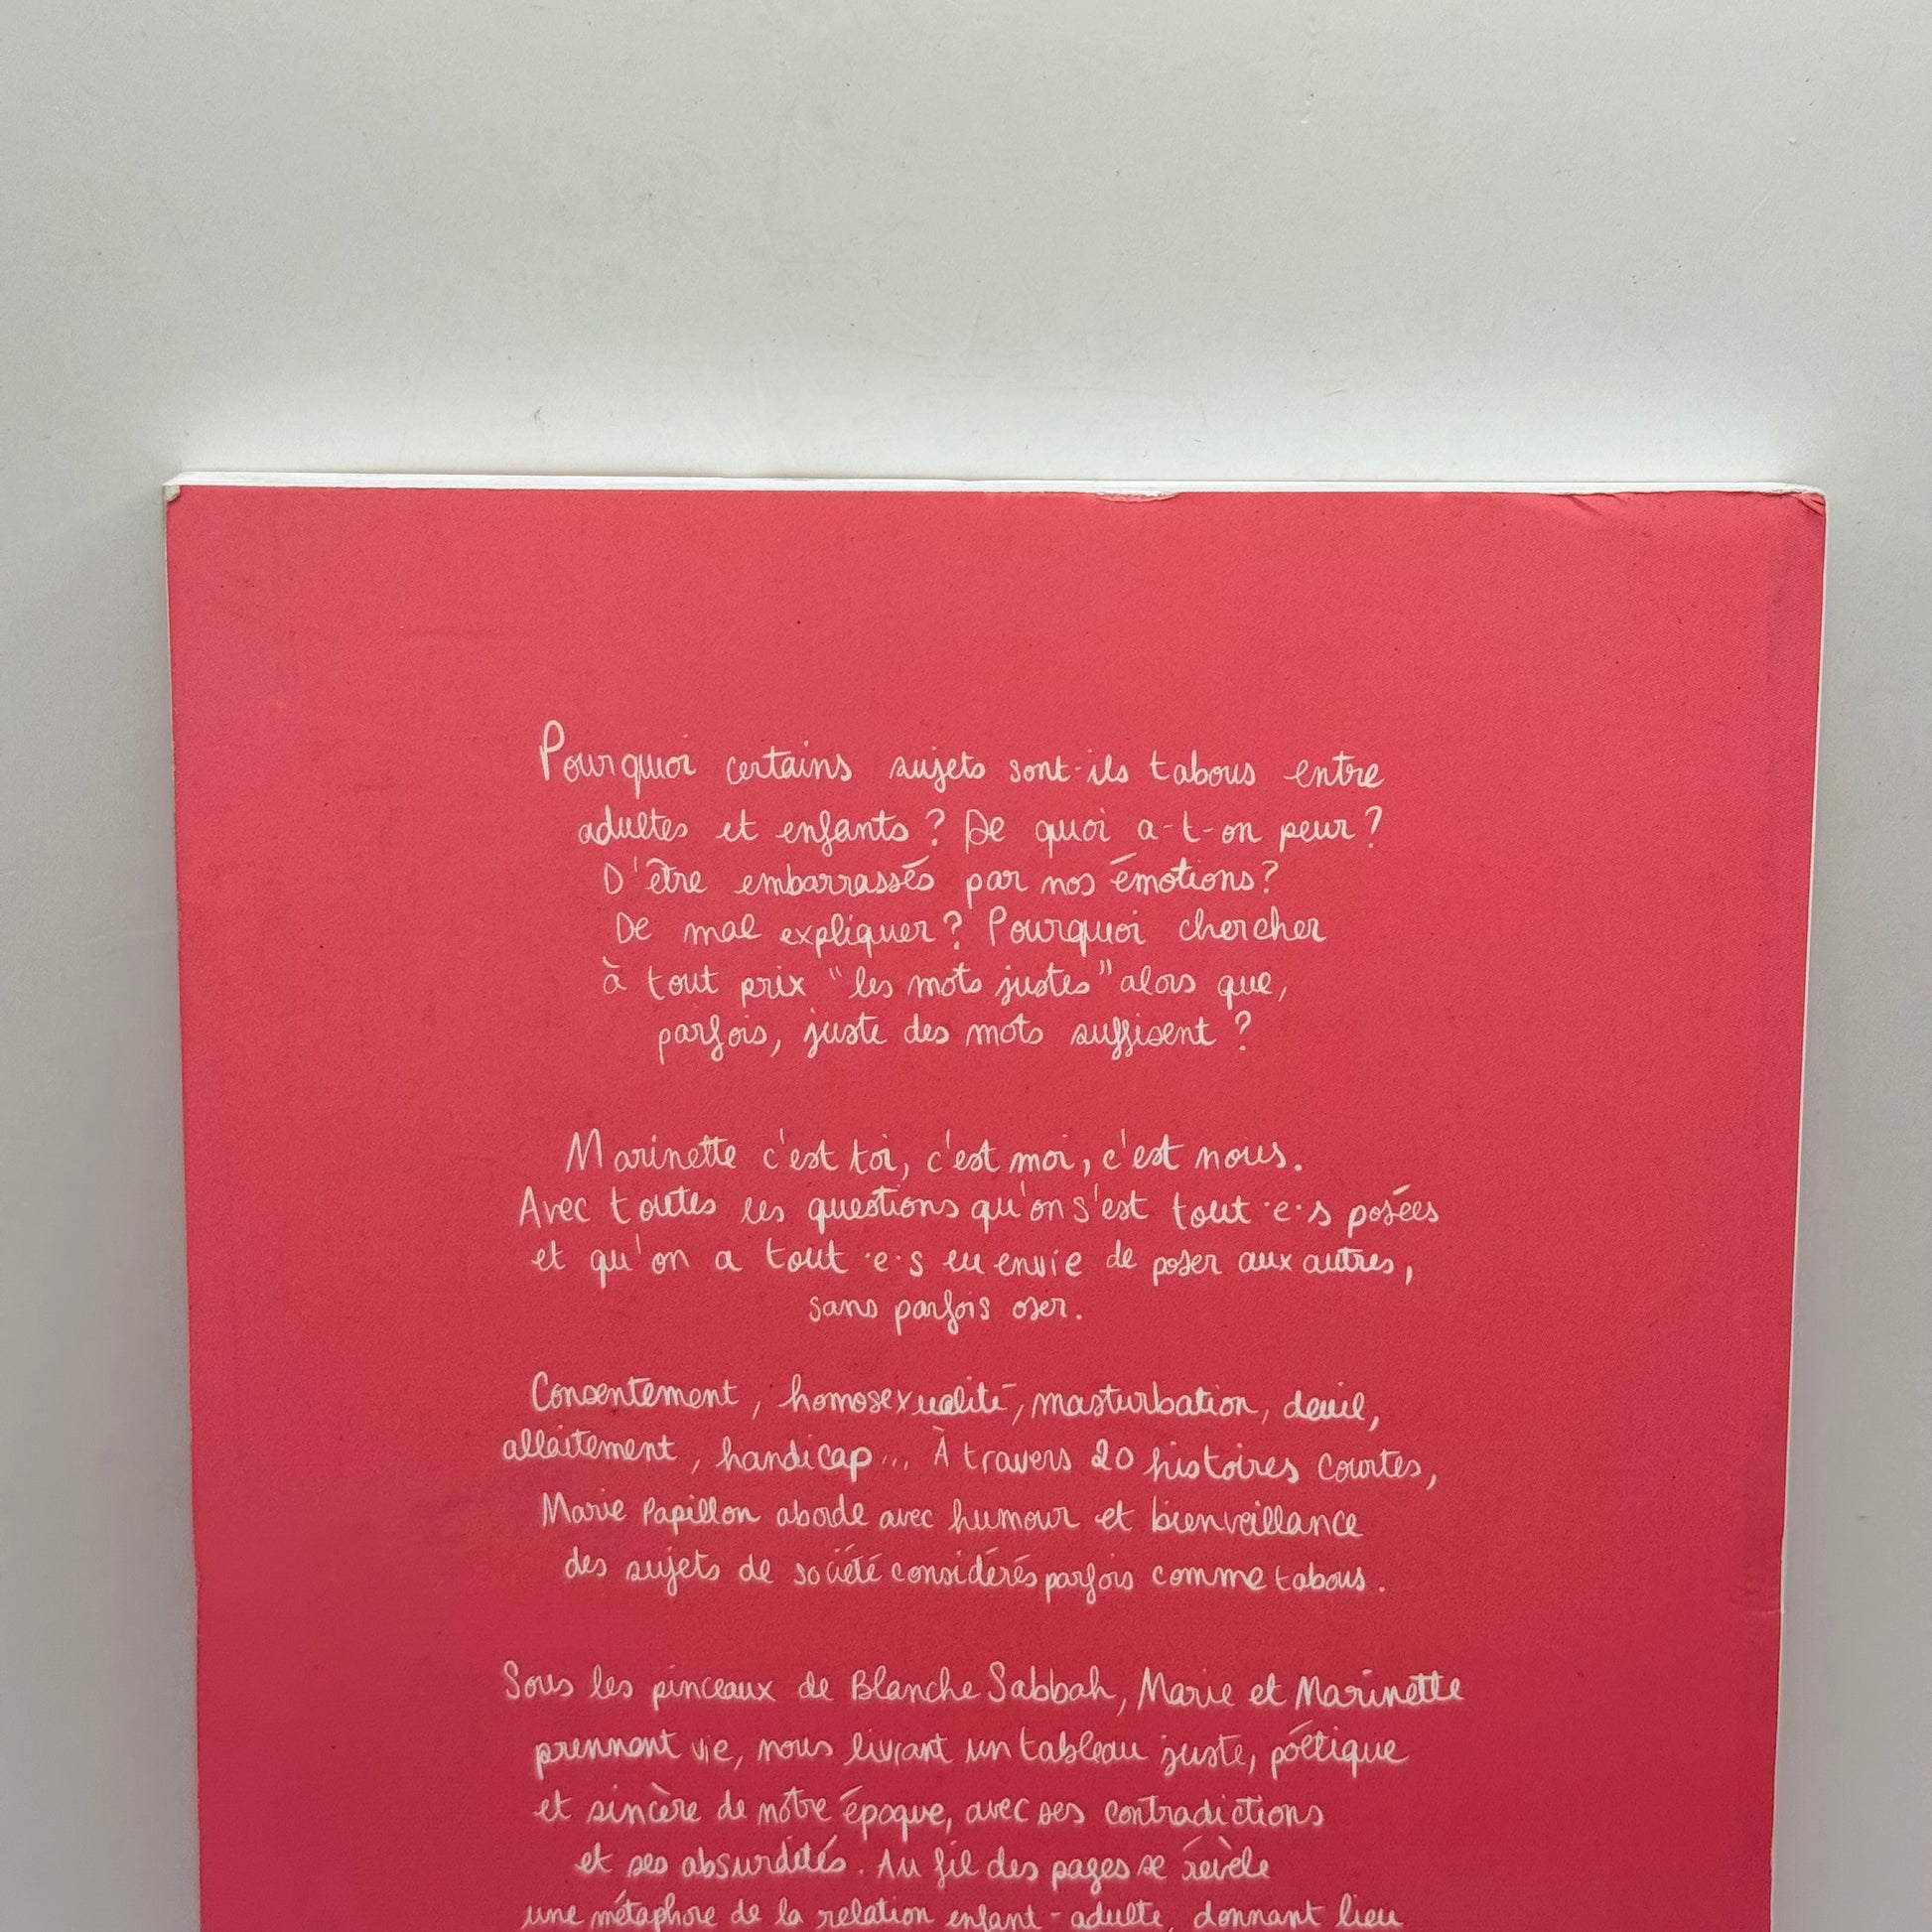 Pourquoi certains sujets sont-ils tabous entre
adultes et enfants ? De quoi a-t-on peur ?
D'être embarrassés par nos émotions ?
De mal expliquer ? Pourquoi chercher
à tout prix "les mots justes" alors que,
parfois, juste des mots suffisent ?
Marinette c'est toi, c'est moi, c'est nous.
Avec toutes les questions qu'on s'est tout·e·s posées
et qu'on a tout·e·s eu envie de poser aux autres,
sans parfois oser.
Consentement, homosexualité, masturbation, deuil,
allaitement, handicap... À travers 20 histoires courtes,
Marie Papillon aborde avec humour et bienveillance
des sujets de société considérés parfois comme tabous.
Sous les pinceaux de Blanche Sabbah, Marie et Marinette
prennent vie, nous livrant un tableau juste, poétique
et sincère de notre époque, avec ses contradictions
et ses absurdités. Au fil des pages se révèle
une métaphore de la relation enfant-adulte, donnant lieu